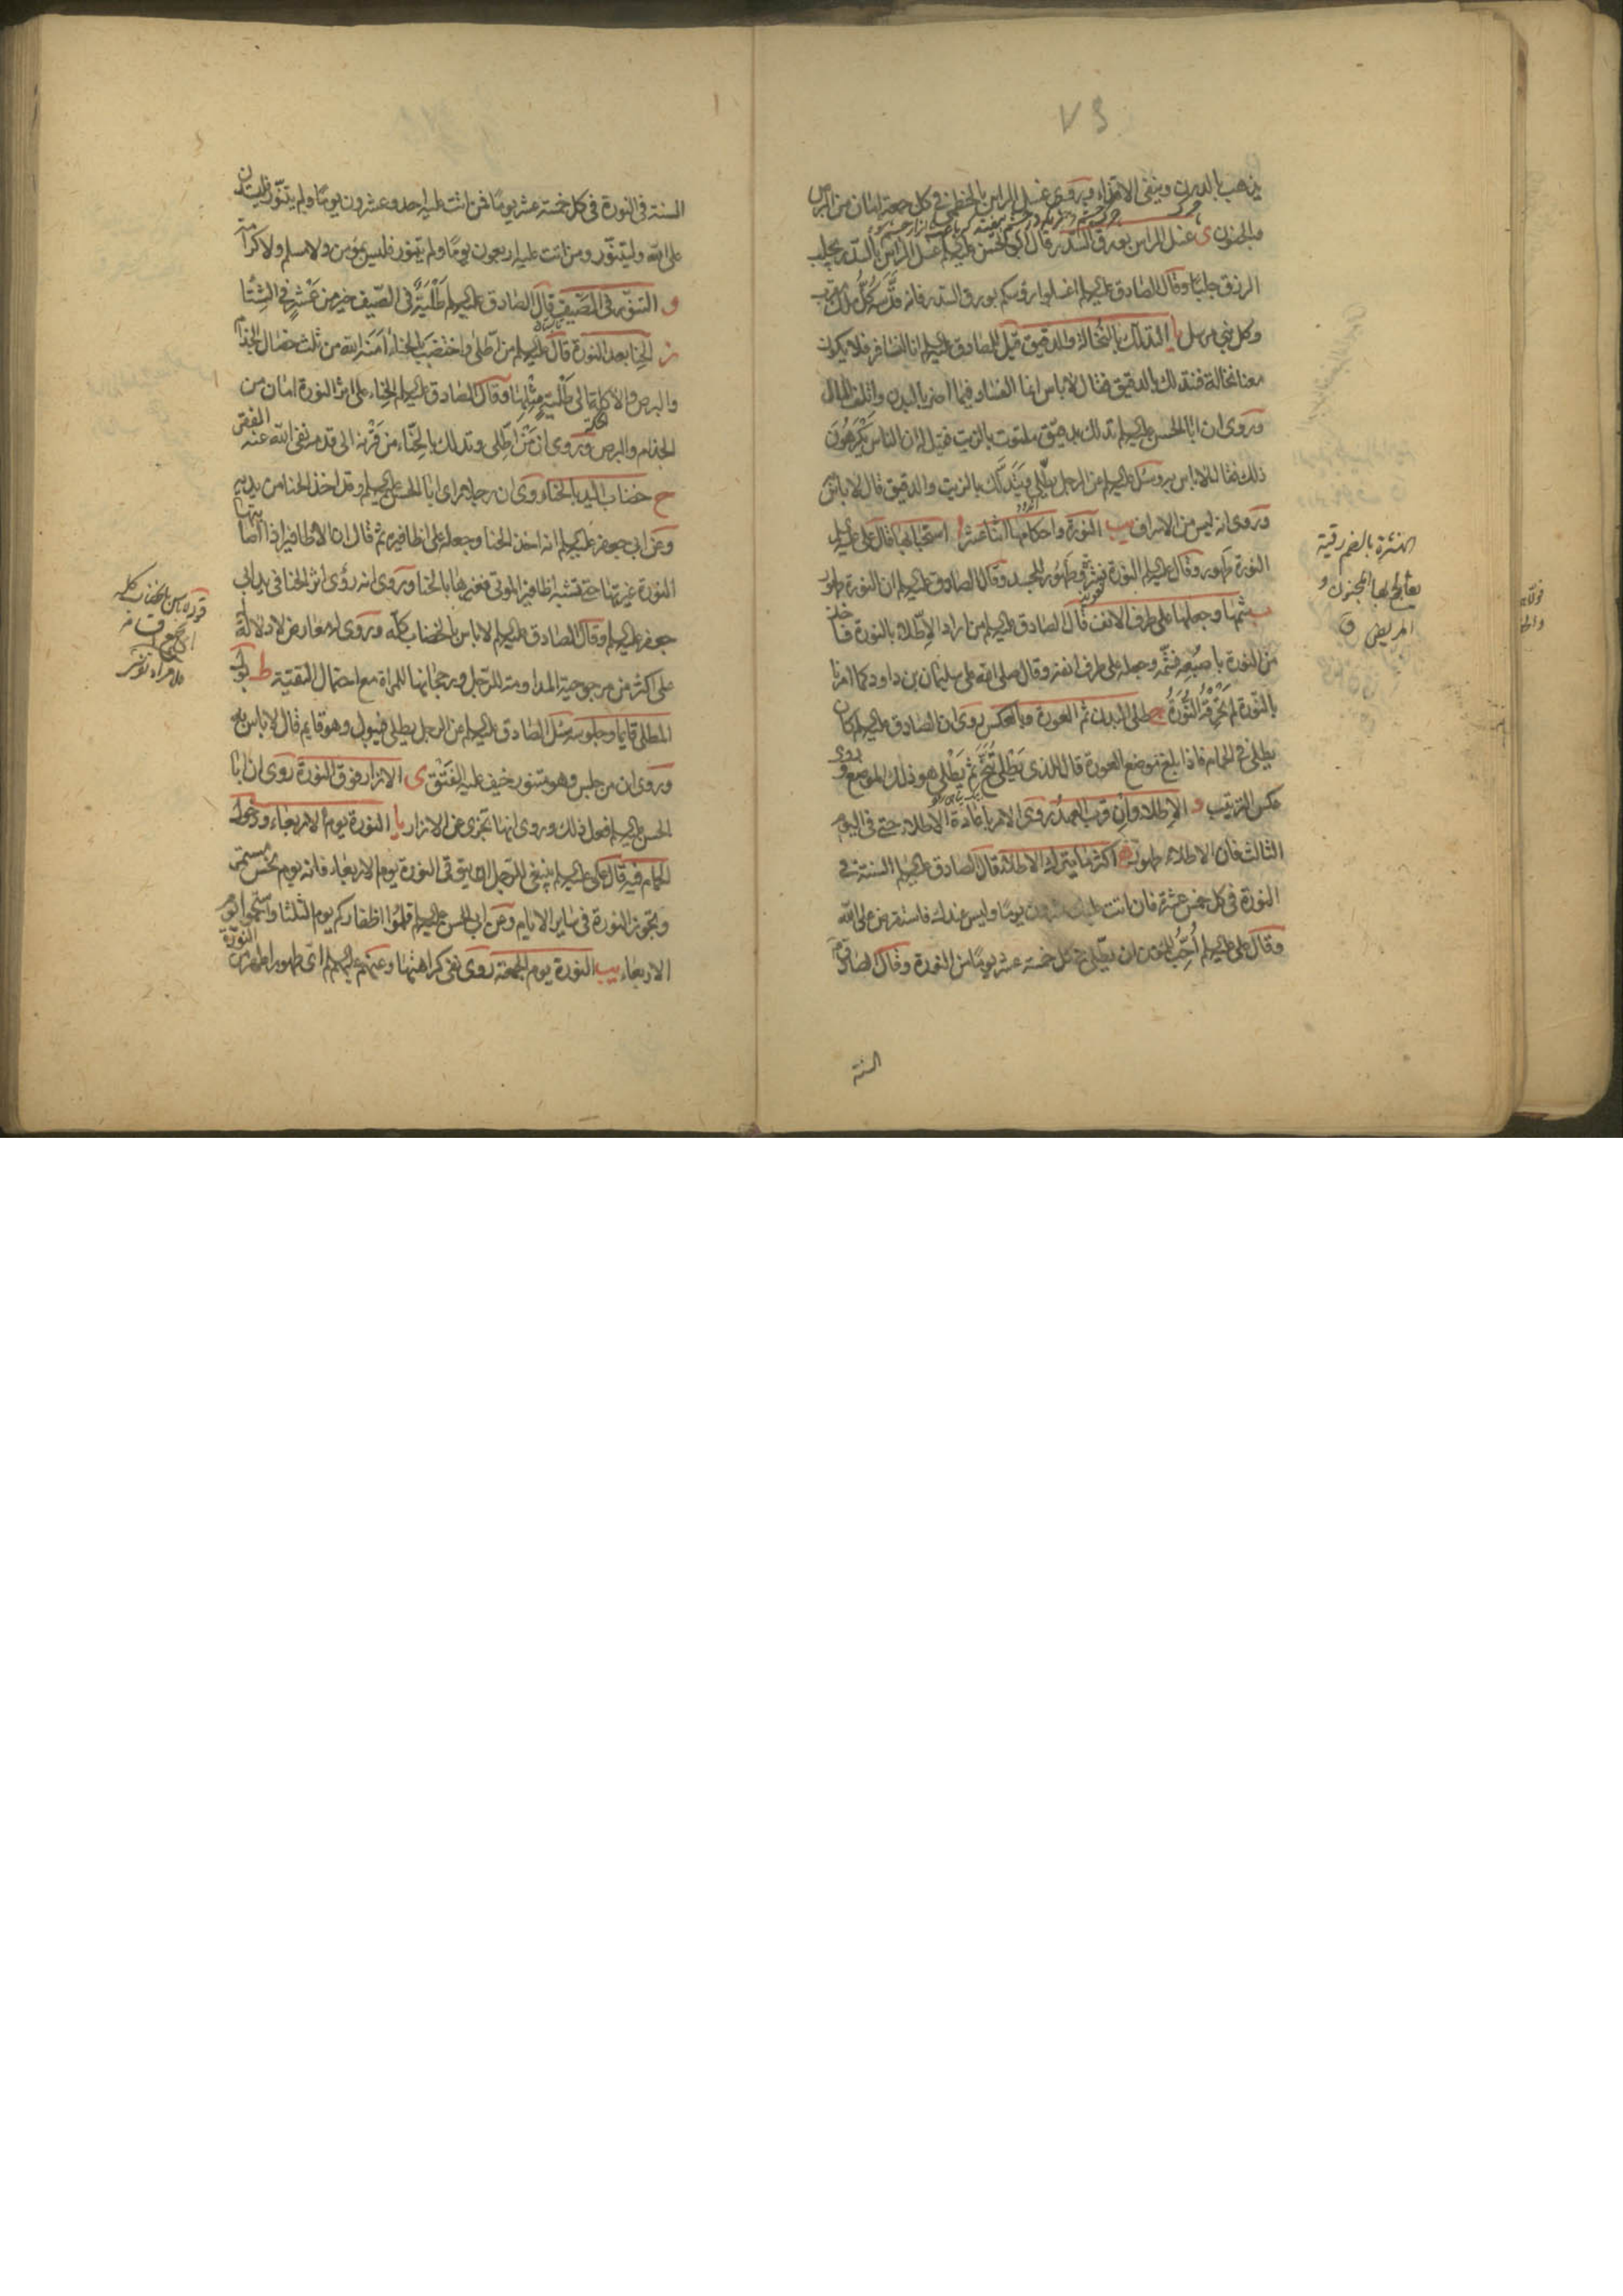 يذهب بالدرن وينفى الاقذاء وروى غسل الراس بالخطمى فى كل جمعة امان من البرص
والجنون ى غسل الراس بورق السدر قال ابو الحسن عليه السلم غسل الراس بالسدر يجلب
الرزق جلبا وقال الصادق عليه السلم اغسلوا رؤسكم بورق السدر فانه قدسه كل ملك مقرب
وكل نبى مرسل يا التدلك بالنخالة والدقيق قيل للصادق عليه السلم انا لنسافر فلا يكون
معنا نخالة فنتدلك بالدقيق فقال لا باس انما الفساد فيما اضر بالبدن واتلف المال
وروى ان ابا الحسن عليه السلم تدلك بدقيق ملتوت بالزيت فقيل له ان الناس يكرهون
ذلك فقال لا باس به وسئل عليه السلم عن الرجل يطلى ويتدلك بالزيت والدقيق قال لا باس
وروى انه ليس من الاسراف يب النورة واحكامها اثنا عشر ا استحبابها قال على عليه السلم
النورة طهور وقال عليه السلم النورة نشرة وطهور للجسد وقال الصادق عليه السلم ان النورة طهور
ب شمها وجعلها على طرف الانف قال الصادق عليه السلم من اراد الاطلاء بالنورة فاخذ
من النورة باصبعه فشمه وجعله على طرف انفه وقال صلى الله على سليمان بن داود كما امرنا
بالنورة لم تحرقه النورة ج طلى البدن ثم العورة وبالعكس روى ان الصادق عليه السلم كان
يطلى فى الحمام فاذا بلغ موضع العورة قال للذى يطلى تنح ثم يطلى هو ذلك الموضع وروى
عكس الترتيب د الاطلاء وان قرب العهد روى الامر باعادة الاطلاء حتى فى اليوم
الثالث فان الاطلاء طهور ه اكثر ما يترك الاطلاء قال الصادق عليه السلم السنة فى
النورة فى كل خمس عشرة فان اتت عليك عشرون يوما وليس عندك فاستقرض على الله
وقال على عليه السلم احب للمؤمن ان يطلى فى كل خمسة عشر يوما من النورة وقال الصادق
السنة
النشرة بالضم رقية
يعالج بها المجنون و
المريض ق
السنة فى النورة فى كل خمسة عشر يوما فمن اتت عليه احد وعشرون يوما ولم يتنور فليستدن
على الله وليتنور ومن اتت عليه اربعون يوما ولم يتنور فليس بمؤمن ولا مسلم ولا كرامة
و التنور فى الصيف قال الصادق عليه السلم طلية فى الصيف خير من عشر فى الشتا
ز الحنا بعد النورة قال عليه السلم من اطلى واختضب بالحناء آمنه الله من ثلث خصال الجذام
والبرص والاكلة الى طلية مثلها وقال الصادق عليه السلم الحناء على اثر النورة امان من
الجذام والبرص وروى ان من اطلى وتدلك بالحناء من قرنه الى قدمه نفى الله عنه الفقر
ح خضاب اليد بالحناء روى ان رجلا راى ابا الحسن عليه السلم وقد اخذ الحنا من يديه
وعن ابى جعفر عليه السلم انه اخذ الحنا وجعله على اظافيره ثم قال ان الاظافير اذا اصابتها
النورة غيرتها حتى تشبه اظافير الموتى فغيرها بالحنا وروى انه رؤى اثر الحنا فى يد ابى
جعفر عليه السلم وقال الصادق عليه السلم لا باس بالخضاب كله وروى لها معارض لا دلالة له
على اكثر من مرجوحية المداومة للرجل ورجحانها للمراة مع احتمال التقية ط بول
المطلى قايما وجلوسه سئل الصادق عليه السلم عن الرجل يطلى فيبول وهو قايم قال لا باس به
وروى ان من جلس وهو متنور خيف عليه الفتق ى الازار فوق النورة روى ان ابا
الحسن عليه السلم فعل ذلك وروى انها تجزى عن الازار يا النورة يوم الاربعاء ودخول
الحمام فيه قال على عليه السلم ينبغى للرجل ان يتوقى النورة يوم الاربعاء فانه يوم نحس مستمر
وتجوز النورة فى ساير الايام وعن ابى الحسن عليه السلم قلموا اظفاركم يوم الثلثا واستحموا يوم
الاربعاء يب النورة يوم الجمعة روى نفى كراهتها وعنهم عليهم السلم اى طهور اطهر من النورة
قوله لا باس بالخضاب كله